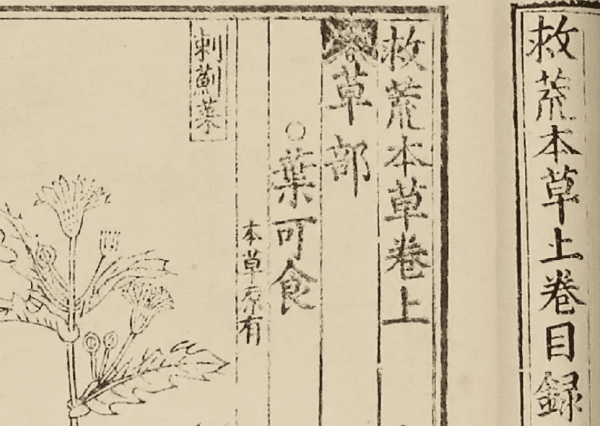 救荒本草上卷目録
救荒本草卷上
草部
○葉可食
本草原有
刺薊菜